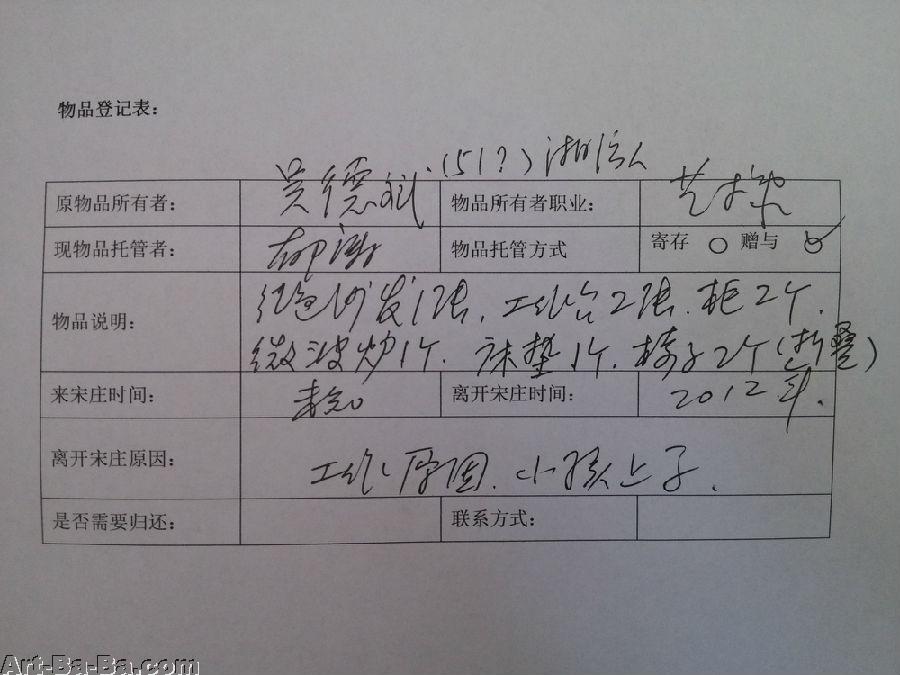 物品登记表：
(51?) 湖
原物品所有者： 吴德斌 物品所有者职业： 艺术家
现物品托管者： 物品托管方式 寄存 ○ 赠与 ○✓
物品说明： 红色沙发1张、工作台2张、柜2个、
微波炉1个、床垫1个、椅子2个（折叠）
来宋庄时间： 未知 离开宋庄时间： 2012年.
离开宋庄原因： 工作原因、小孩上子.
是否需要归还： 联系方式：
Art-Ba-Ba.com